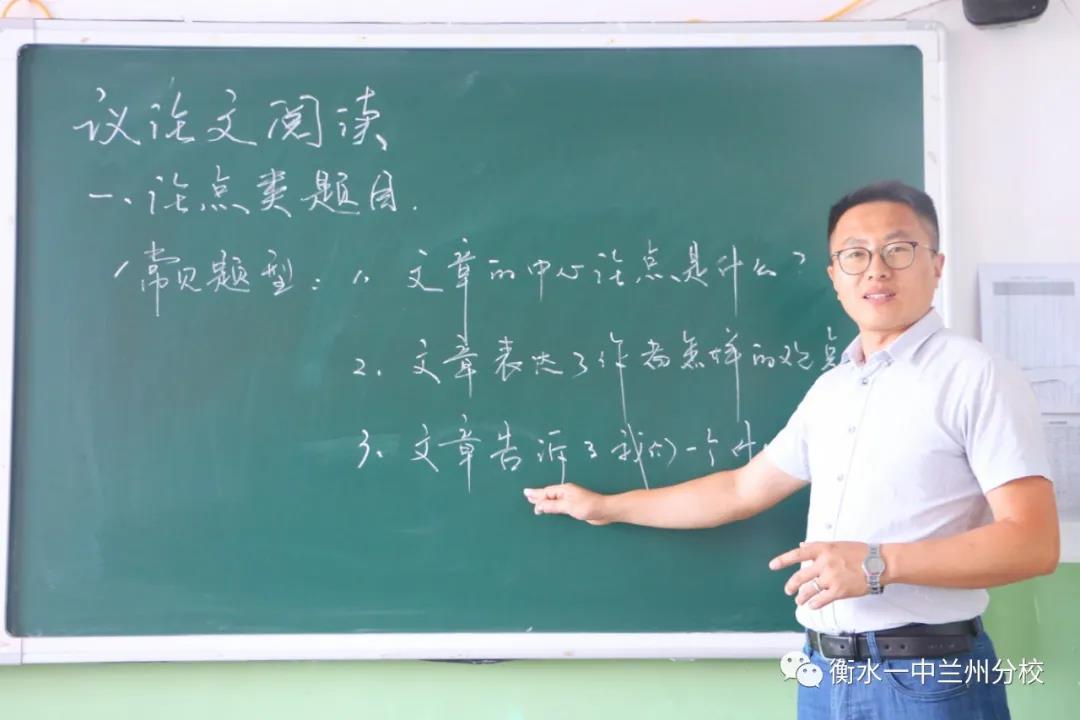 议论文阅读
一、论点类题目.
1常见题型: 1. 文章的中心论点是什么?
2. 文章表达了作者怎样的观点
3. 文章告诉了我们一个什
衡水一中兰州分校